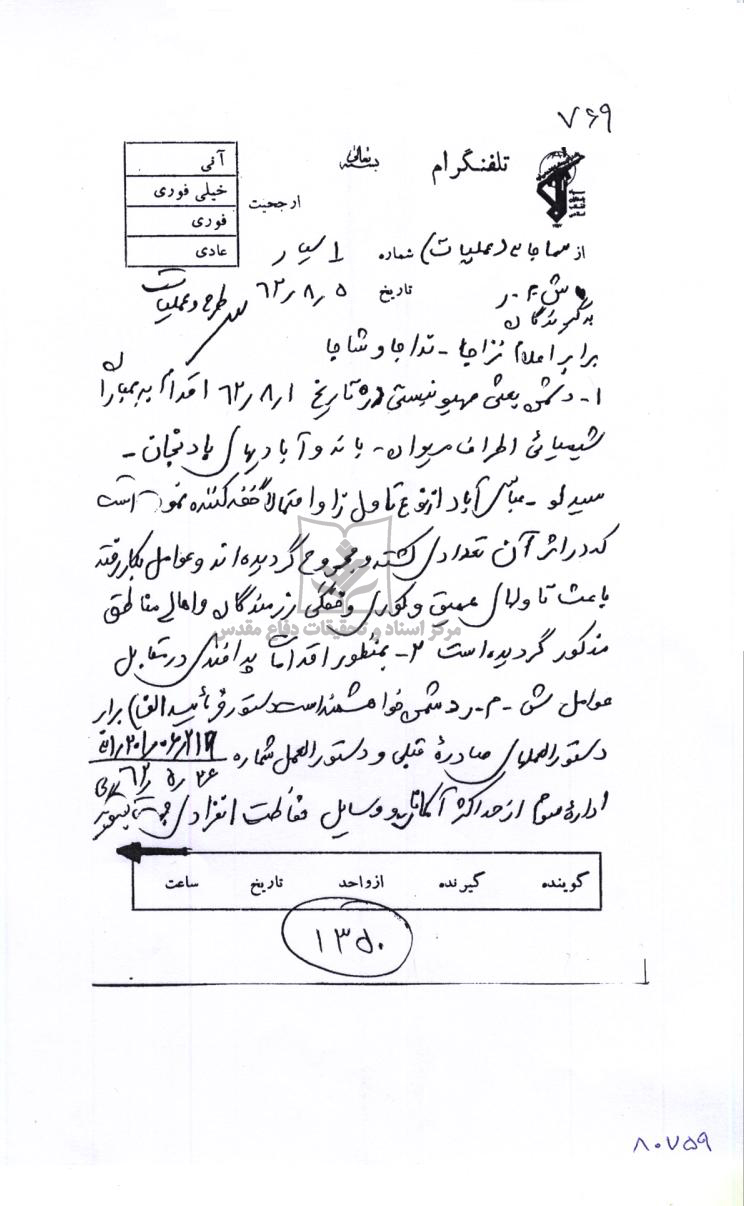 ۷۶۹
تلفنگرام
بسمه تعالی
ارجحیت
آنی
خیلی فوری
فوری
عادی
از سماجا ۳ (عملیات) شماره
تاریخ ۶۲٫۸٫۵
طرح و عملیات
به گیرندگان
برابر اعلام نزاجا - نداجا و شاجا
۱- دشمن بعثی صهیونیستی در تاریخ ۶۲٫۸٫۱ اقدام به بمباران
شیمیائی اطراف مریوان - بانه و آبادیهای بادنجان -
سیدلو - عباس آباد از نوع تاول زا و احتمالا خفه کننده نموده است
که در اثر آن تعدادی کشته و مجروح گردیده اند و عوامل بکار رفته
باعث تاولهای عمیق و کوری و خفگی رزمندگان و اهالی مناطق
مذکور گردیده است ۲- بمنظور اقدامات پدافندی در مقابل
عوامل ش - م - ر دشمن خواهشمند است دستور فرمائید الف) برابر
دستورالعملهای صادره قبلی و دستورالعمل شماره
۶۲٫۵٫۲۶
اداره سوم از حداکثر امکانات و وسایل حفاظت انفرادی
گوینده گیرنده از واحد تاریخ ساعت
۱۳۵۰
مرکز اسناد و تحقیقات دفاع مقدس
۸۰۷۵۹